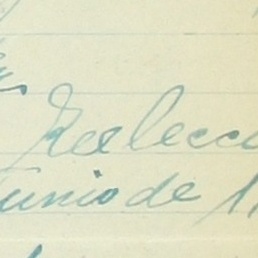 Reelecco
Junio de 1